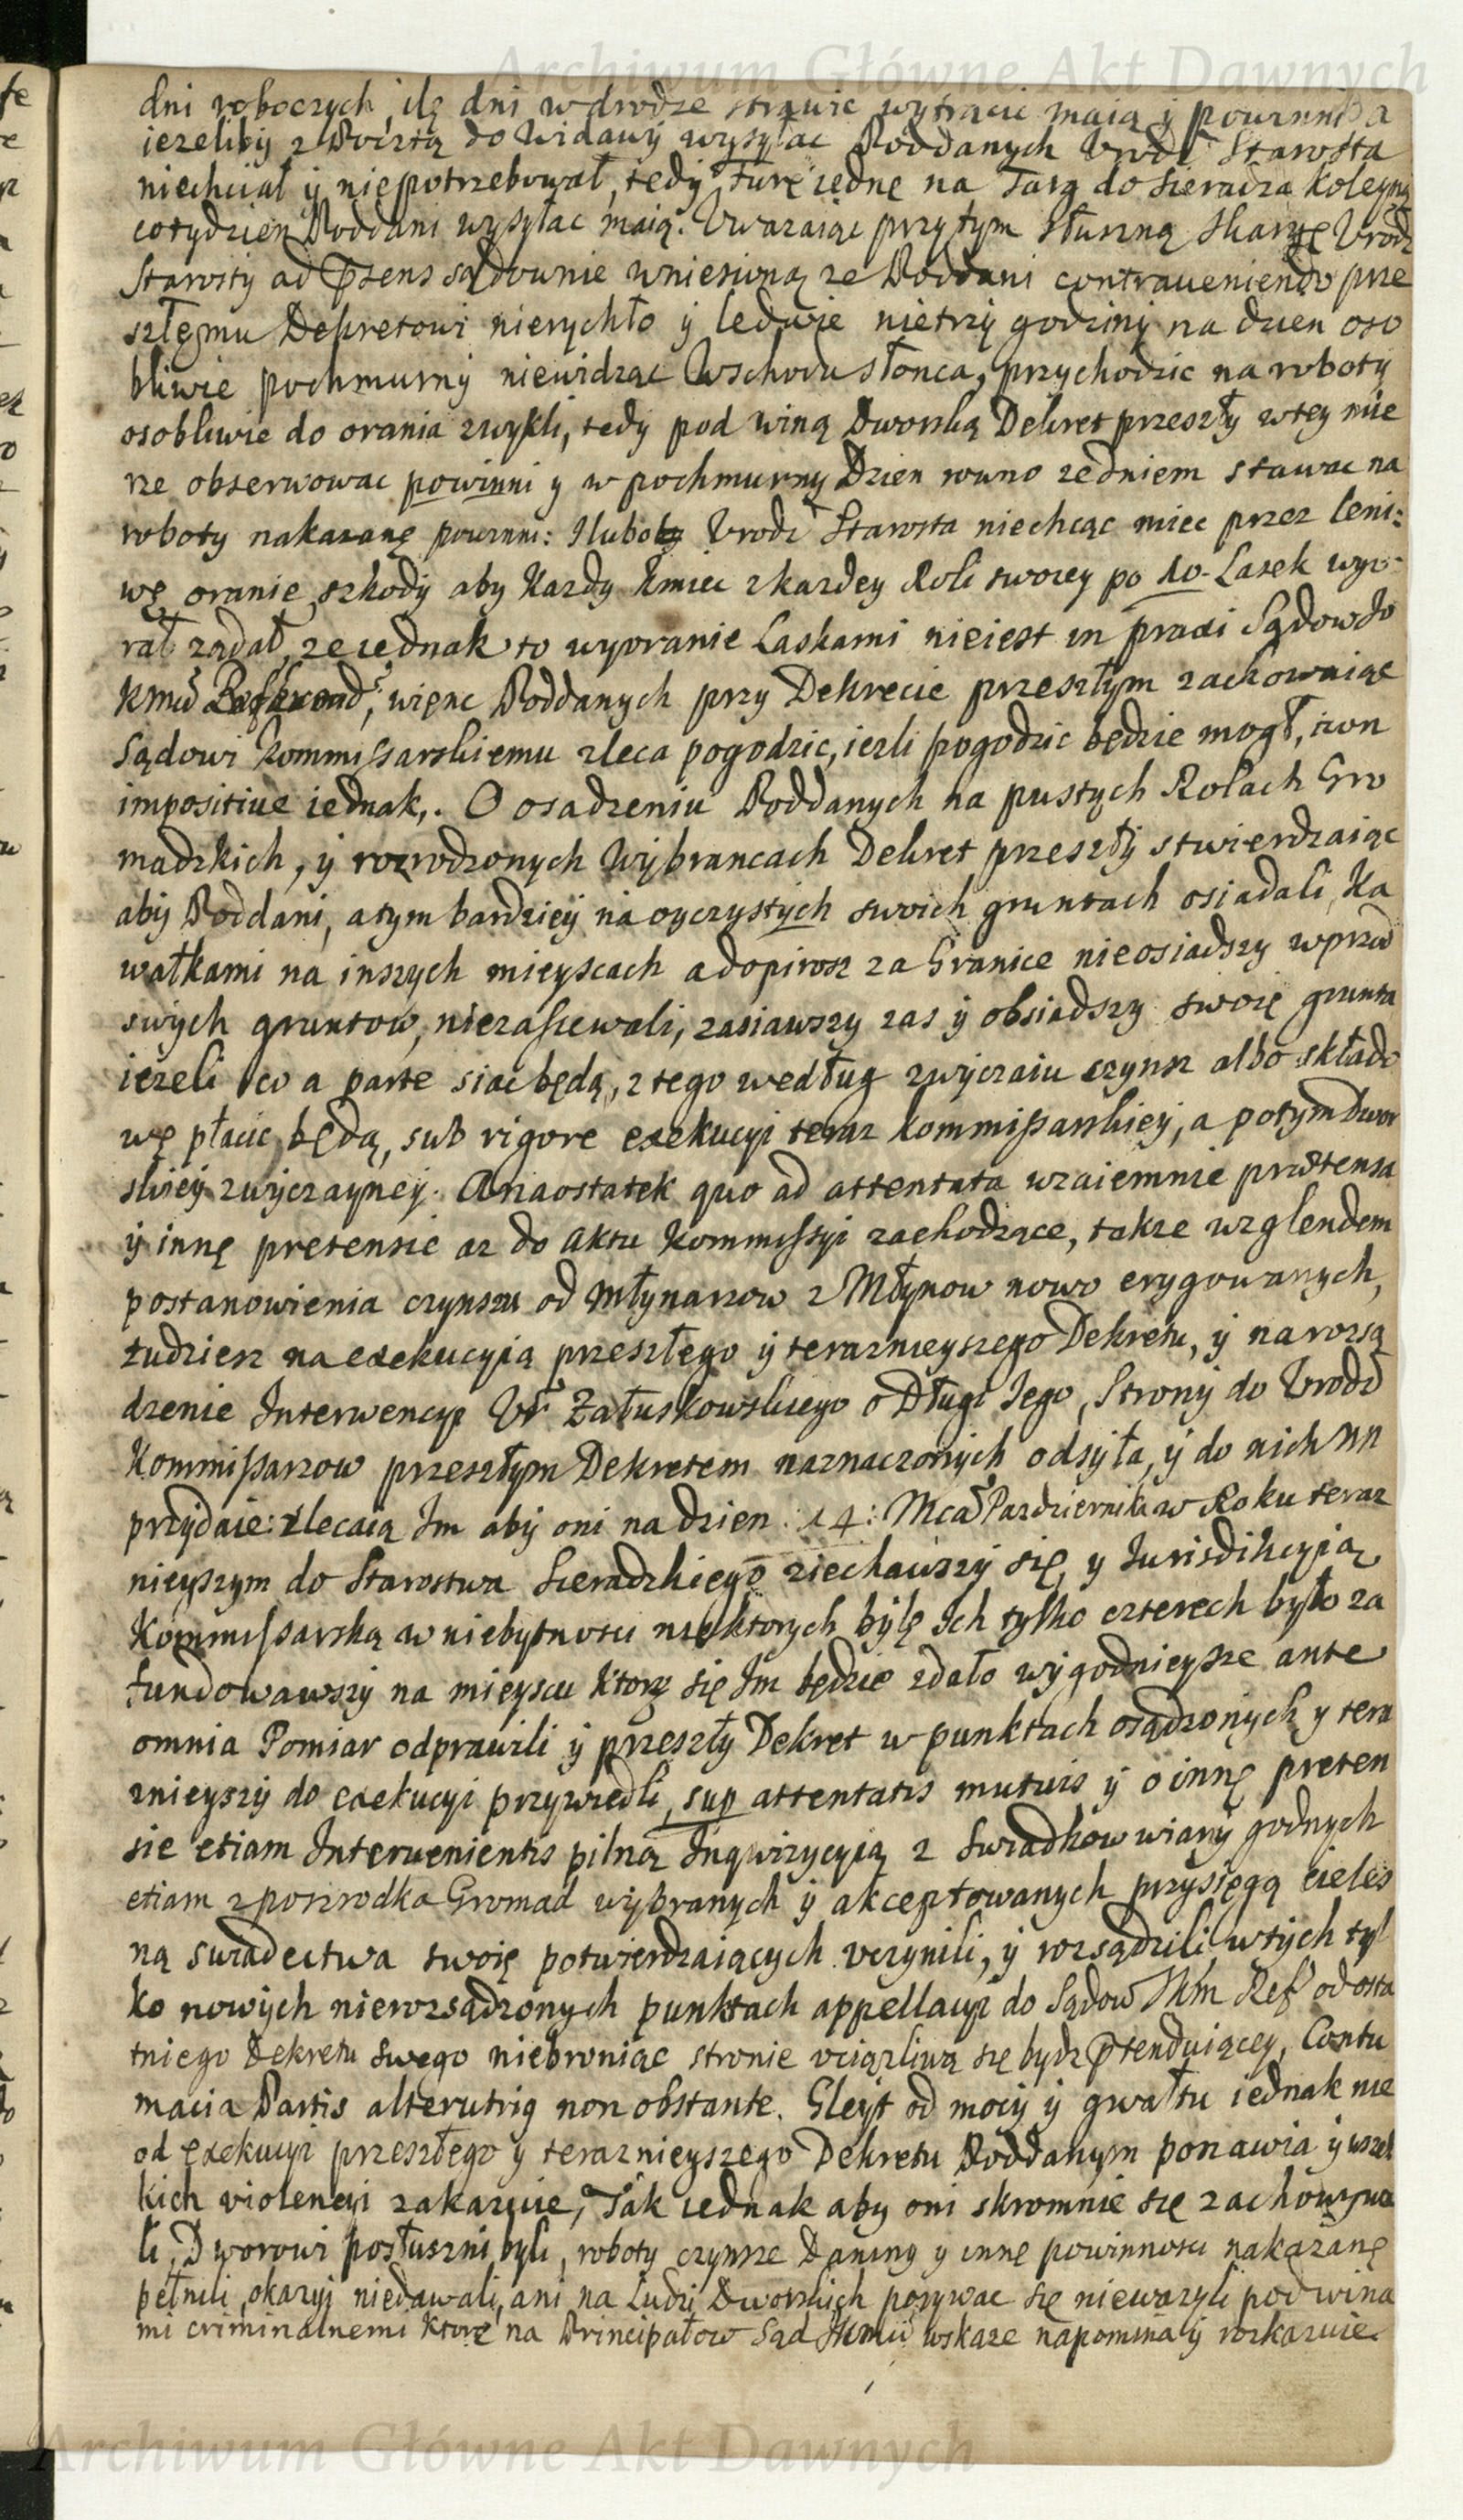 Archiwum Główne Akt Dawnych
dni roboczych, ilę dni w drodze strawic wytracic maią y powinni, a
ieżeliby z Pocztą do Widawy wysyłac Poddanych Urodź Starosta
niechciał y niepotrzebował, tedy furę iednę na Targ do Sieradza koleyną
cotydzien Poddani wysyłac maią. Uwazaiąc przytym słuszną skargę Urodź
Starosty ad Psens sądownie wniesioną ze Poddani contraueniendo prze
szłęmu Dekretowi nierychło y ledwie nietrzy godziny na dzien oso
bliwie pochmurny niewidząc Wschodu słonca, przychodzic na roboty
osobliwie do orania zwykli, tedy pod winą Dworską Dekret przeszły wtey mie
rze obserwowac powinni y w pochmurny Dzien rowno zedniem stawac na
roboty nakazanę powinni: Ilubo Urodź Starosta niechcąc miec przez leni:
wę oranie szkody aby Kazdy Kmiec zkazdey Roli swoiey po 10. Lasek wyo:
rał ządał, ze iednak to wyoranie Laskami nieiest in praxi Sądow Jo
Kmci, więnc Poddanych przy Dekrecie przeszłym zachowaiąc
Sądowi Kommissarskiemu zleca pogodzic, iezli pogodzic będzie mogł, non
impositiue iednak,. O osadzeniu Poddanych na pustych Rolach Gro
madzkich, y rozrodzonych Wybrancach Dekret przeszły stwierdzaiąc
aby Poddani, atym bardziey na oyczystych swoich gruntach osiadali, Ka
wałkami na inszych mieyscach adopirosz za Granice nieosiadszy wprzod
swych gruntow, niezasiewali, zasiawszy zas y obsiadszy swoię grunta
ieżeli co a parte siac będą, ztego według zwyczaiu czynsz albo składo
wę płacic będą, sub rigore exekucyi teraz kommissarskiey, a potym Dwor
skiey zwyczayney. Anaostatek quo ad attentata wzaiemnie prætensa
y innę pretensie az do aktu Kommissyi zachodzące, takze wzglendem
postanowienia czynszu od Młynarzow z Młynow nowo erygowanych,
tudziesz na exekucyią przeszłego y terazneyszego Dekretu, y na rozsą
dzenie Interwencyi Ur Załuskowskiego o Długi Jego, Strony do Urodź
Kommissarzow przeszłym Dekretem naznaczonych odsyła, y do nich NN
przydaie: zlecaią Im aby oni na dzien 14: Mca Pazdziernika w Roku teraz
nieyszym do Starostwa Sieradzkiego ziechawszy się, y Jurisdikcyią
Kommissarską w niebytnosci niektorych bylę Ich tylko czterech było za
fundowawszy na mieyscu ktorę się Im będzie zdało wygodnieysze ante
omnia Pomiar odprawili y przeszły Dekret w punktach osądzonych y tera
znieyszy do exekucyi przywiedli, sup attentatis mutuis y o innę preten
sie etiam Interuenientis pilną Inqwizycyią z Swiadkow wiary godnych
etiam zposrzodka Gromad wybranych y akceptowanych przysięgą cieles
ną swiadectwa swoię potwierdzaiących uczynili, y rozsądzili wtych tyl
ko nowych nierozsądzonych punktach appellacyi do Sądow JKm Ref od osta
tniego Dekretu swego niebroniąc stronie uciązliwą się bydz Ptenduiącey, Contu
macia Partis alterutrig non obstante. Gleyt od mocy y gwałtu iednak nie
od exekucyi przeszłego y teraznieyszego Dekretu Poddanym ponawia y wszel
kich violencyi zakazuie, Tak iednak aby oni skromnie się zachowywa
li, Dworowi posłuszni byli, roboty czynsze Daniny y innę powinnosci nakazanę
pełnili, okazyi niedawali, ani na Ludzi Dworskich porywac się niewazyli pod wina
mi criminalnemi ktore na Principałow Sąd JKmci wskaze napomina y rozkazuie.
Archiwum Główne Akt Dawnych